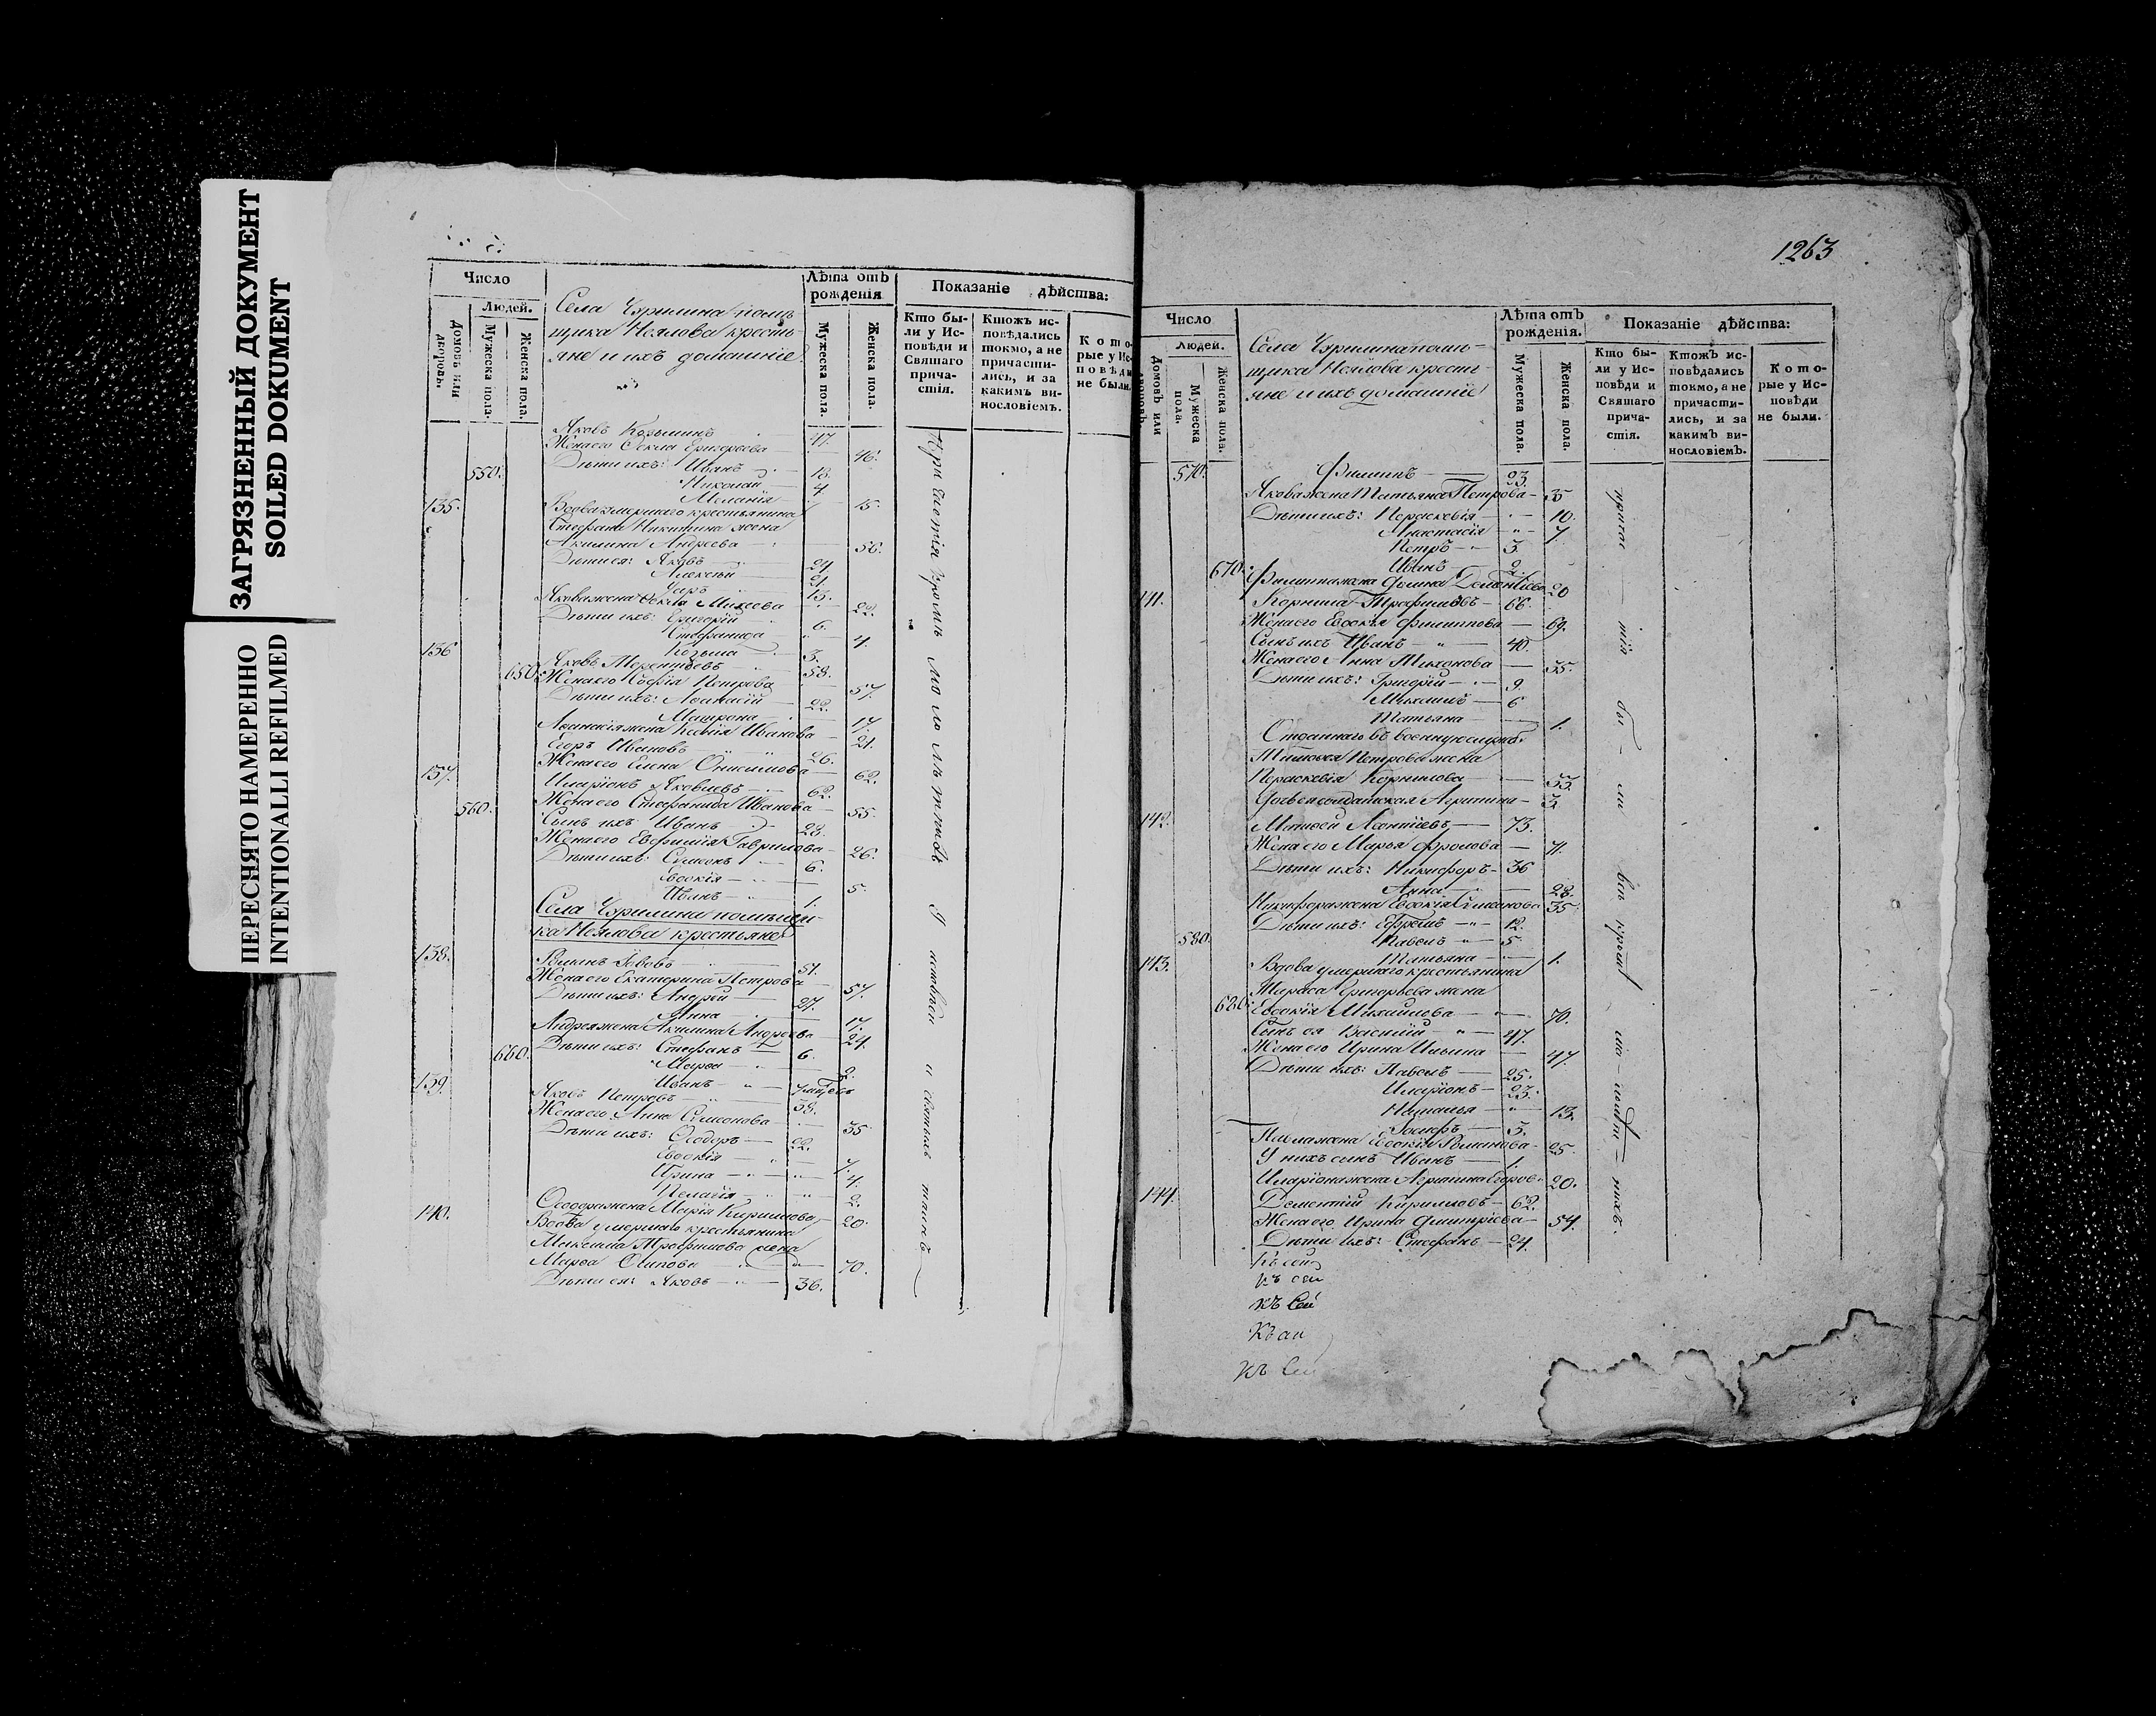 ЗАГРЯЗНЕННЫЙ ДОКУМЕНТ
SOILED DOKUMENT
ПЕРЕСНЯТО НАМЕРЕННО
INTENTIONALLI REFILMED
Число
Людей.
Домовъ или дворовъ.
Мужеска пола.
Женска пола.
Села Чурилина помѣ
щика Неялова кресть-
яне и ихъ домашніе
Лѣта отъ рожденія
Мужеска пола.
Женска пола.
Показаніе дѣйства:
Кто бы-
ли у Ис-
повѣди и
Святаго
прича-
стія.
Ктожъ ис-
повѣдались
токмо, а не
причасти-
лись, и за
какимъ ви-
нословіемъ.
Кото-
рые у Ис-
повѣди
не были.
Яковъ Козьминъ 47.
Жена его Ѳекла Григорьева 46.
550. Дѣти ихъ: Иванъ 18.
Николай 4.
Меланія 15.
135. Вдова умершаго крестьянина
Стефана Никитина жена
Акилина Андреева 56.
Дѣти ея: Яковъ 24.
Алексѣй 21.
13.
Якова жена Ѳекла Михеева 22.
Дѣти ихъ: Григорій 6.
Стефанида 4.
Козьма 3.
136 Яковъ 58.
650. Жена его Софія Петрова 57.
Дѣти ихъ: Аѳанасій 22.
Матрона 17.
Аѳанасія жена Ксенія Иванова 21.
Егоръ Ивановъ 26.
Жена его Елена Онисимова 62.
137. Иларіонъ Яковлевъ 62.
Жена его Стефанида Иванова 55.
560. Сынъ ихъ Иванъ 28.
Жена его Евфимія Гаврилова 26.
Дѣти ихъ: Симеонъ 6.
Евдокія 5.
Иванъ 1.
Села Чурилина помѣщи-
ка Неялова крестьяне
138. Романъ 51.
Жена его Екатерина Петрова 57.
Дѣти ихъ: Андрей 27.
Анна 17.
Андрея жена Акилина Андреева 24.
660. Дѣти ихъ: Стефанъ 6.
Марѳа 2.
Иванъ
139. Яковъ Петровъ 38.
Жена его Анна Симеонова 35
Дѣти ихъ: Ѳеодоръ 22.
Евдокія 7.
Ирина 4.
Пелагія 2.
Ѳеодора жена Марія Кирилова 20.
140. Вдова умершаго крестьянина
Максима Трофимова жена
Марѳа Осипова 70.
Дѣти ея: Яковъ 36.
1263
Число
Людей.
Домовъ или дворовъ.
Мужеска пола.
Женска пола.
Села Чурилина поми-
щика Неялова кресть-
яне и ихъ домашніе
Лѣта отъ рожденія.
Мужеска пола.
Женска пола.
Показаніе дѣйства:
Кто бы-
ли у Ис-
повѣди и
Святаго
прича-
стія.
Ктожъ ис-
повѣдались
токмо, а не
причасти-
лись, и за
какимъ ви-
нословіемъ.
Кото-
рые у Ис-
повѣди
не были.
570. Филиппъ 23.
Якова жена Татьяна Петрова 35
Дѣти ихъ: Параскевія 10.
Анастасія 7
Петръ 3.
Иванъ 2.
670. Филиппа жена Домна Дементіева 20
141. Корнила Трофимовъ 66.
Жена его Евдокія Филиппова 69.
Сынъ ихъ Иванъ 40.
Жена его Анна Тихонова 35.
Дѣти ихъ: Григорій 9.
Михаилъ 6
Татьяна 1.
Отданнаго въ военную службу
Тимоѳея Петрова жена
Параскевія Корнилова 33.
Дочь ея солдатская Агрипина 3.
142. Матѳей Леонтіевъ 73.
Жена его Марья Фролова 71.
Дѣти ихъ: Никифоръ 36
Анна 28.
Никифора жена Евдокія Симонова 35.
Дѣти ихъ: Ефремъ 12.
580. Павелъ 5.
Татьяна 1.
143. Вдова умершаго крестьянина
Григорьева жена
680. Евдокія Михайлова 70.
Сынъ ея Василій 47.
Жена его Ирина Ильина 47.
Дѣти ихъ: Павелъ 25.
Иларіонъ 23.
Наталья 13.
Іосифъ 3.
Павла жена Евдокія Романова 25.
У нихъ сынъ Иванъ 1.
Иларіона жена Агрипина Егоров. 20.
144. Дементій Кириловъ 62.
Жена его Ирина Дмитріева 54.
Дѣти ихъ: Стефанъ 24.
къ сей
къ сей
къ Сей